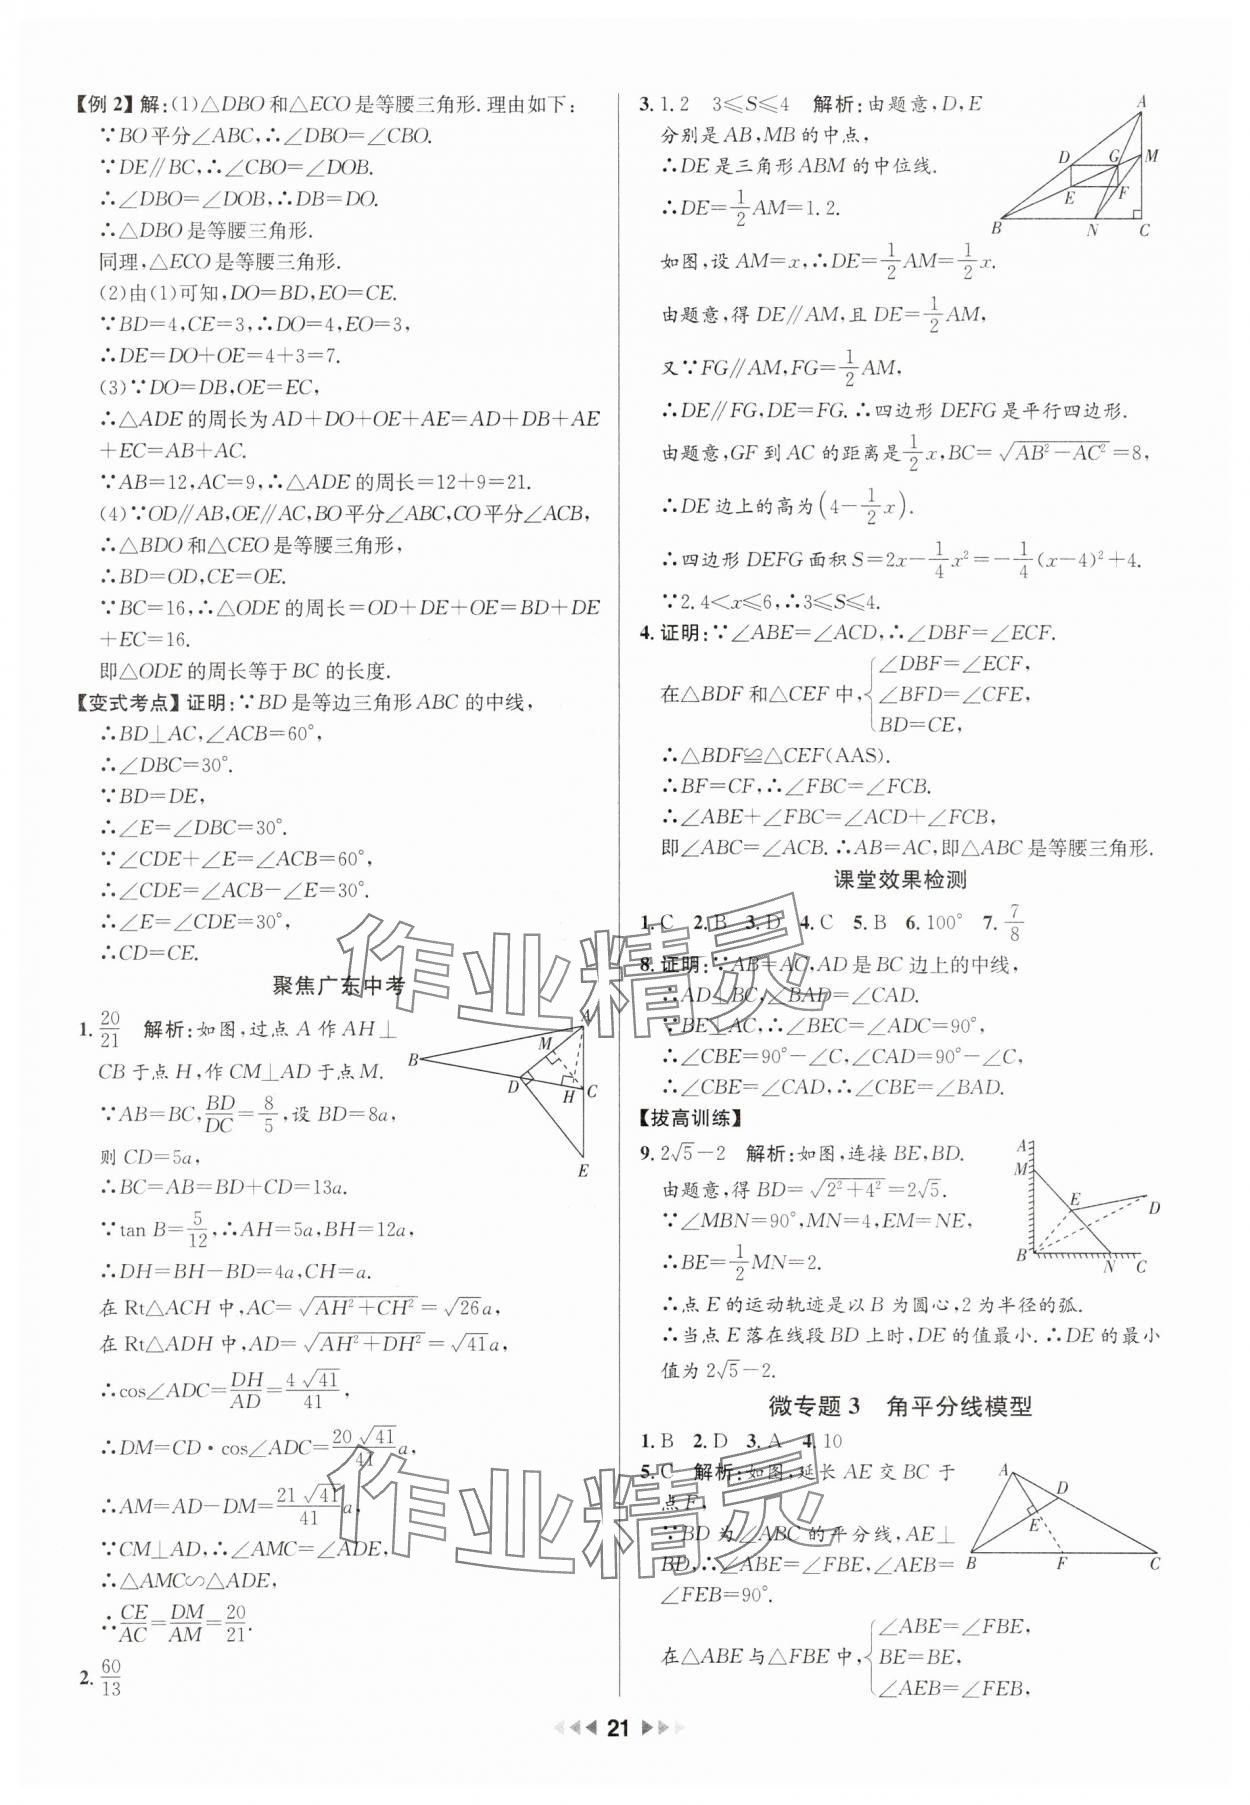 【例2】解:(1)△DBO和△ECO是等腰三角形.理由如下:
∵BO平分∠ABC,∴∠DBO=∠CBO.
∵DE∥BC,∴∠CBO=∠DOB.
∴∠DBO=∠DOB,∴DB=DO.
∴△DBO是等腰三角形.
同理,△ECO是等腰三角形.
(2)由(1)可知,DO=BD,EO=CE.
∵BD=4,CE=3,∴DO=4,EO=3,
∴DE=DO+OE=4+3=7.
(3)∵DO=DB,OE=EC,
∴△ADE的周长为AD+DO+OE+AE=AD+DB+AE
+EC=AB+AC.
∵AB=12,AC=9,∴△ADE的周长=12+9=21.
(4)∵OD∥AB,OE∥AC,BO平分∠ABC,CO平分∠ACB,
∴△BDO和△CEO是等腰三角形,
∴BD=OD,CE=OE.
∵BC=16,∴△ODE的周长=OD+DE+OE=BD+DE
+EC=16.
即△ODE的周长等于BC的长度.
【变式考点】证明:∵BD是等边三角形ABC的中线,
∴BD⊥AC,∠ACB=60°,
∴∠DBC=30°.
∵BD=DE,
∴∠E=∠DBC=30°.
∵∠CDE+∠E=∠ACB=60°,
∴∠CDE=∠ACB-∠E=30°.
∴∠E=∠CDE=30°,
∴CD=CE.
聚焦广东中考
1. 20/21 解析:如图,过点A作AH⊥
CB于点H,作CM⊥AD于点M.
∵AB=BC,BD/DC=8/5,设BD=8a,
则CD=5a,
∴BC=AB=BD+CD=13a.
∵tan B=5/12,∴AH=5a,BH=12a,
∴DH=BH-BD=4a,CH=a.
在Rt△ACH中,AC=√(AH²+CH²)=√26a,
在Rt△ADH中,AD=√(AH²+DH²)=√41a,
∴cos∠ADC=DH/AD=4√41/41,
∴DM=CD·cos∠ADC=20√41/41a,
∴AM=AD-DM=21√41/41a,
∵CM⊥AD,∴∠AMC=∠ADE,
∴△AMC∽△ADE,
∴CE/AC=DM/AM=20/21.
2. 60/13
A
M
B
D
H
C
E
3. 1.2 3≤S≤4 解析:由题意,D,E
分别是AB,MB的中点,
∴DE是三角形ABM的中位线.
∴DE=1/2AM=1.2.
如图,设AM=x,∴DE=1/2AM=1/2x.
由题意,得DE∥AM,且DE=1/2AM,
又∵FG∥AM,FG=1/2AM,
∴DE∥FG,DE=FG.∴四边形DEFG是平行四边形.
由题意,GF到AC的距离是1/2x,BC=√(AB²-AC²)=8,
∴DE边上的高为(4-1/2x).
∴四边形DEFG面积S=2x-1/4x²=-1/4(x-4)²+4.
∵2.4<x≤6,∴3≤S≤4.
A
D
G
M
E
F
B
N
C
4. 证明:∵∠ABE=∠ACD,∴∠DBF=∠ECF.
∠DBF=∠ECF,
在△BDF和△CEF中,{∠BFD=∠CFE,
BD=CE,
∴△BDF≌△CEF(AAS).
∴BF=CF,∴∠FBC=∠FCB.
∴∠ABE+∠FBC=∠ACD+∠FCB,
即∠ABC=∠ACB.∴AB=AC,即△ABC是等腰三角形.
课堂效果检测
1. C 2. B 3. D 4. C 5. B 6. 100° 7. 7/8
8. 证明:∵AB=AC,AD是BC边上的中线,
∴AD⊥BC,∠BAD=∠CAD.
∵BE⊥AC,∴∠BEC=∠ADC=90°,
∴∠CBE=90°-∠C,∠CAD=90°-∠C,
∴∠CBE=∠CAD,∴∠CBE=∠BAD.
【拔高训练】
9. 2√5-2 解析:如图,连接BE,BD.
由题意,得BD=√(2²+4²)=2√5.
∵∠MBN=90°,MN=4,EM=NE,
∴BE=1/2MN=2.
∴点E的运动轨迹是以B为圆心,2为半径的弧.
∴当点E落在线段BD上时,DE的值最小.∴DE的最小
值为2√5-2.
A
M
E
D
B
N
C
微专题3 角平分线模型
1. B 2. D 3. A 4. 10
5. C 解析:如图,延长AE交BC于
点F,
∵BD为∠ABC的平分线,AE⊥
BD,∴∠ABE=∠FBE,∠AEB=
∠FEB=90°.
∠ABE=∠FBE,
在△ABE与△FBE中,{BE=BE,
∠AEB=∠FEB,
A
D
E
B
F
C
21
作业精灵
作业精灵